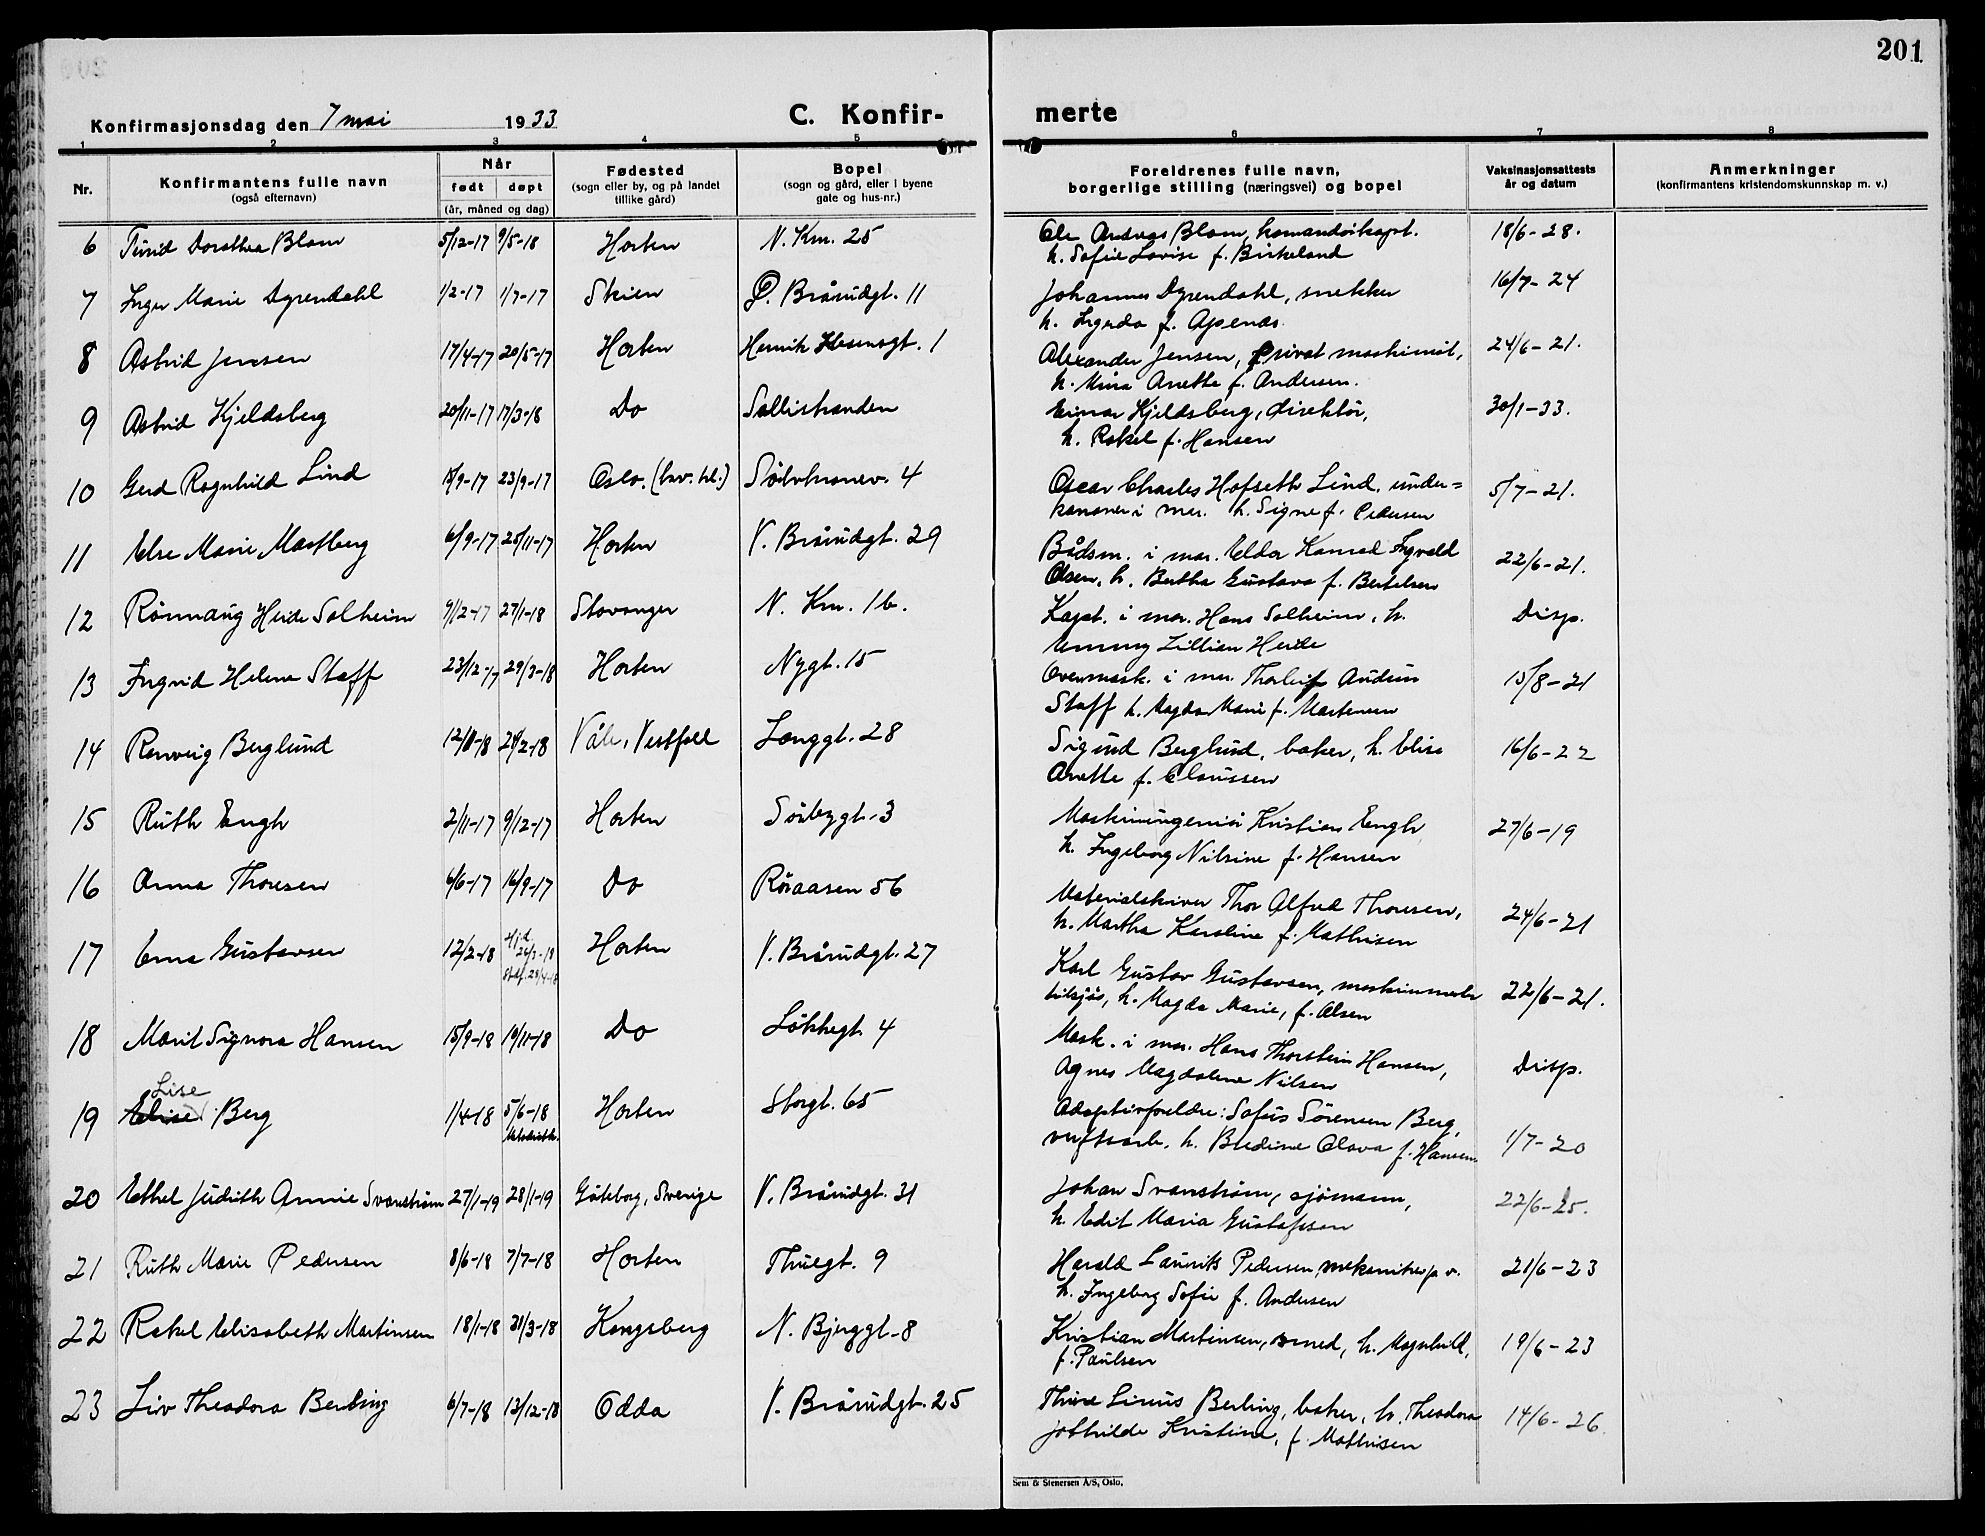 201
Konfirmasjonsdag den 7 mai 1933
C. Konfir-
merte
1 2 3 4 5 6 7 8
Nr.
Konfirmantens fulle navn
(også efternavn)
Når
født døpt
(år, måned og dag)
Fødested
(sogn eller by, og på landet
tillike gård)
Bopel
(sogn og gård, eller i byene
gate og hus-nr.)
Foreldrenes fulle navn,
borgerlige stilling (næringsvei) og bopel
Vaksinasjonsattests
år og datum
Anmerkninger
(konfirmantens kristendomskunnskap m. v.)
6 Turid Dorothea Blom 5/12-17 9/5-18 Horten N. Km. 25 Ole Andreas Blom, komandørkapt. 18/6-28.
h. Sofie Lovise f. Birkeland
7 Inger Marie Dyrendahl 1/2-17 1/7-17 Skien P. Brårudgt. 11 Johannes Dyrendahl, snekker 16/7-24
h. Ingeda f. Apenæs.
8 Astrid Jensen 17/4-17 20/5-17 Horten Henrik Ibsensgt. 1 Alexander Jensen, privat maskinist, 24/6-21.
h. Mina Anetta f. Andersen.
9 Astrid Kjeldsberg 20/11-17 17/3-18 Do Sollistranden Einar Kjeldsberg, direktør, 30/1-33.
h. Rakel f. Hansen
10 Gerd Ragnhild Lind 15/9-17 23/9-17 Oslo. Sölvkronev. 4 Oscar Charles Hofseth Lind. under= 5/7-21.
kanoner i mar. h. Signe f. Pedersen
11 Else Marie Mostberg 6/9-17 25/11-17 Horten V. Brårudgt. 29 Bådsm. i mar. Eldor Konrad Ingvald 22/6-21.
Olsen, h. Bertha Gustava f. Bertelsen
12 Rönnaug Heide Solheim 9/12-17 27/1-18 Stavanger N. Km. 16. Kapt. i mar. Hans Solheim, h. Disp.
Emmy Lillian Heide
13 Ingrid Helene Staff 23/12-17 29/3-18 Horten Nygt. 15 Overmask. i mar. Thorleif Audun 15/8-21
Staff h. Magda Marie f. Martensen
14 Ranveig Berglund 12/1-18 24/2-18 Våle, Vestfold Langgt. 28 Sigurd Berglund, baker, h. Elise 16/6-22
Anette f. Claussen
15 Ruth Engh 2/11-17 9/12-17 Horten Sörbygt. 3 Maskiningeniør Kristian Engh 27/6-19
h. Ingeborg Nilsine f. Hansen
16 Anna Thoresen 6/6-17 16/9-17 Do Röraasen 56 Materialskriver Thor Alfred Thoresen, 24/6-21
h. Martha Karoline f. Mathisen
17 Erna Gustavsen 12/2-18 Hjd. 26/2-18 Horten V. Brårudgt. 27 Karl Gustav Gustavsen, 22/6-21.
stadf. 28/4-18
h. Magda Marie, f. Olsen
18 Marit Signora Hansen 15/9-18 10/11-18 Do Løkkegt. 4 Mask. i mar. Hans Thorstein Hansen, Disp.
Agnes Magdalene Nilsen
Lise
19 Elise Berg 1/4-18 5/6-18 Horten Storgt. 65 Adoptivforeldre: Sofus Sörensen Berg, 1/7-20
Metodistk.
verftsarb. h. Bredine Olava f. Hansen
20 Ethel Judith Annie Svanström 27/1-19 28/1-19 Göteborg, Sverige V. Brårudgt. 31 Johan Svanström, sjömann, 22/6-25.
h. Edit Maria Gustafsson
21 Ruth Marie Pedersen 8/6-18 7/7-18 Horten Thuegt. 9 Harald Laurits Pedersen mekaniker p. v. 21/6-23
h. Ingeborg Sofie f. Andersen
22 Rakel Elisabeth Martinsen 18/1-18 31/3-18 Kongsberg N. Bjerggt. 8 Kristian Martinsen, smed, h. Magnhild, 19/6-23
f. Paulsen
23 Liv Theodora Berling 6/7-18 13/12-18 Odda V. Brårudgt. 25 Thure Linus Berling, baker, h. Theodora 14/6-26.
Jothilde Kristine, f. Mathisen
Sem & Stenersen A/S, Oslo.